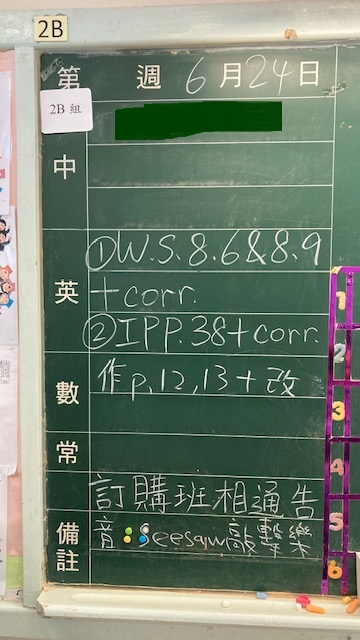 2B
第 週 6月24日
2B 組
中
①W.S.8.6&8.9
英
+corr.
②IPP.38+corr.
數
作p.12,13+改
常
訂購班相通告
備註
音 Seesaw敲擊樂
1
2
3
4
5
6